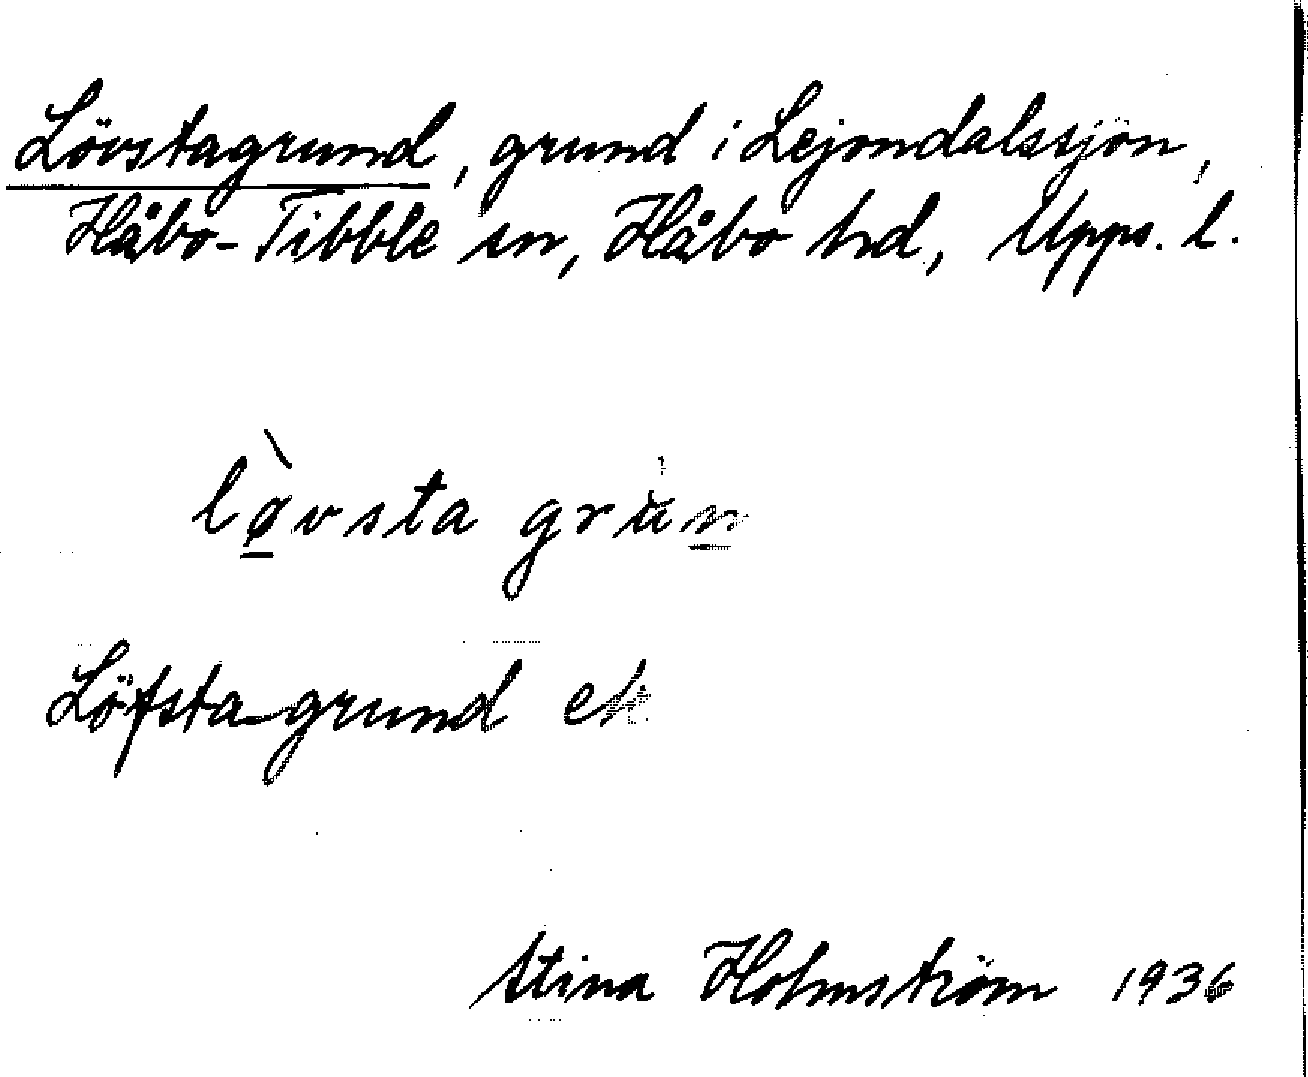 Lövstagrund, grund i Lejondalssjön,
Håbo-Tibble sn, Håbo hd, Upps. l.
lø̀vsta grun
Löfsta-grund ek
Stina Holmström 1936